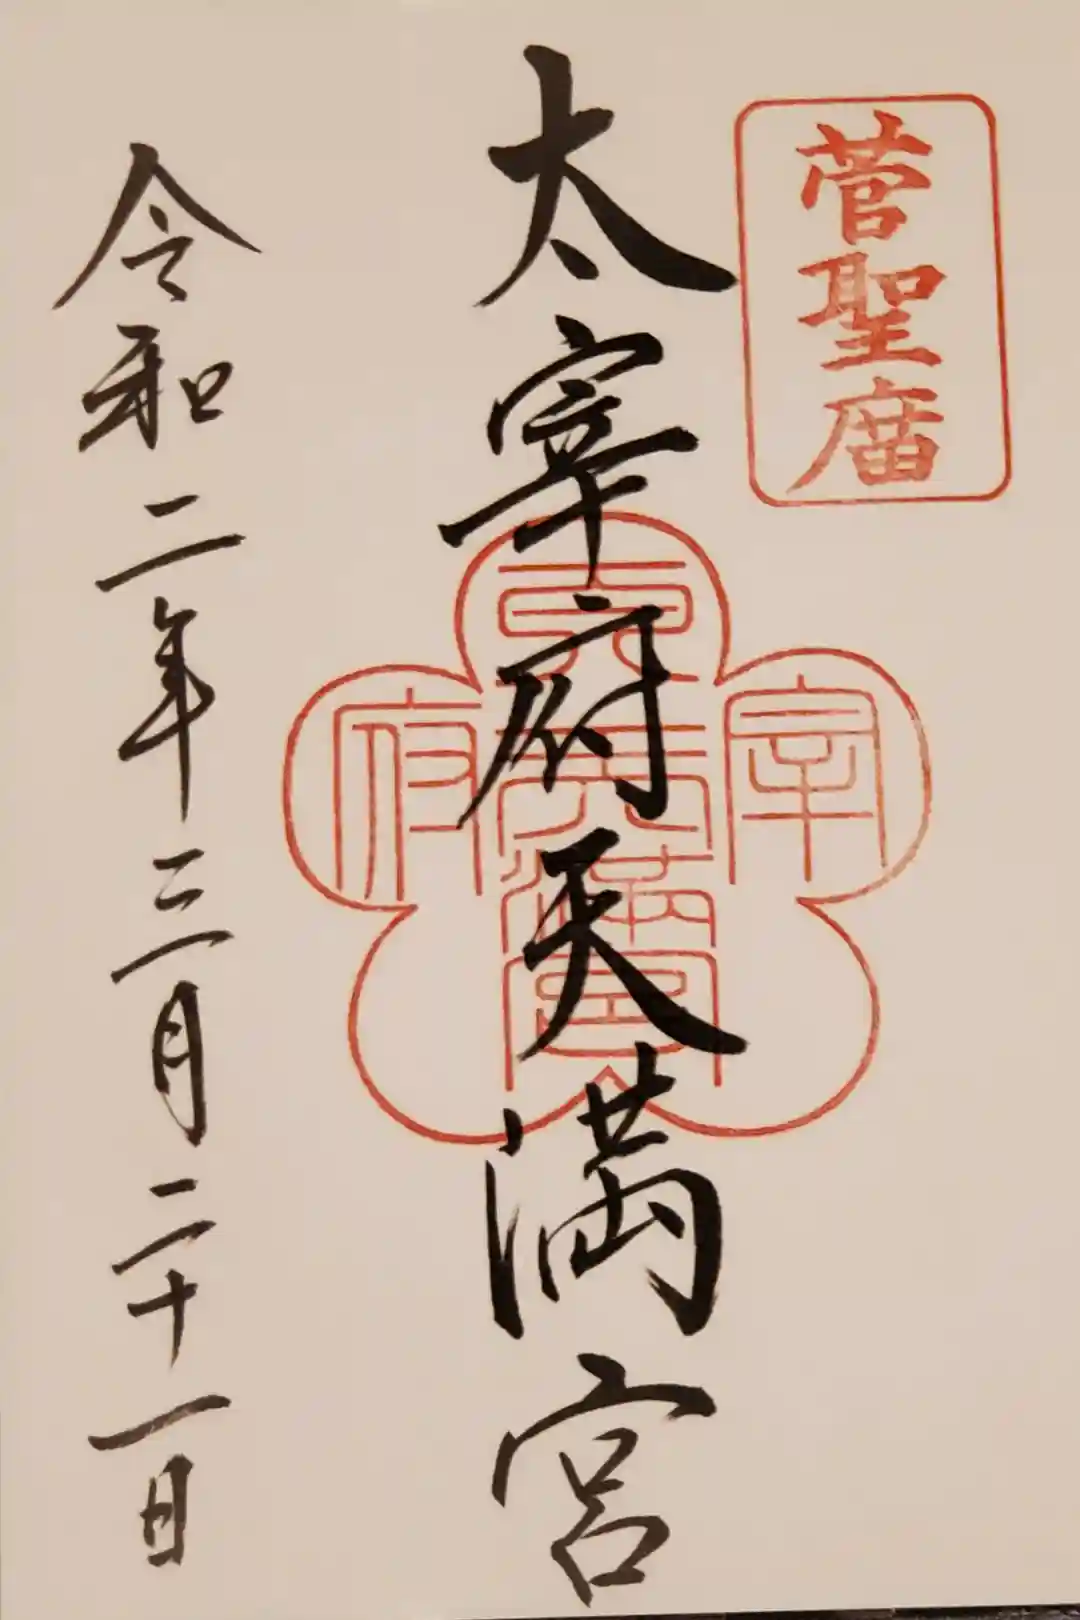 菅聖庿
太宰府天満宮
宰
府
天満宮
令和二年三月二十一日